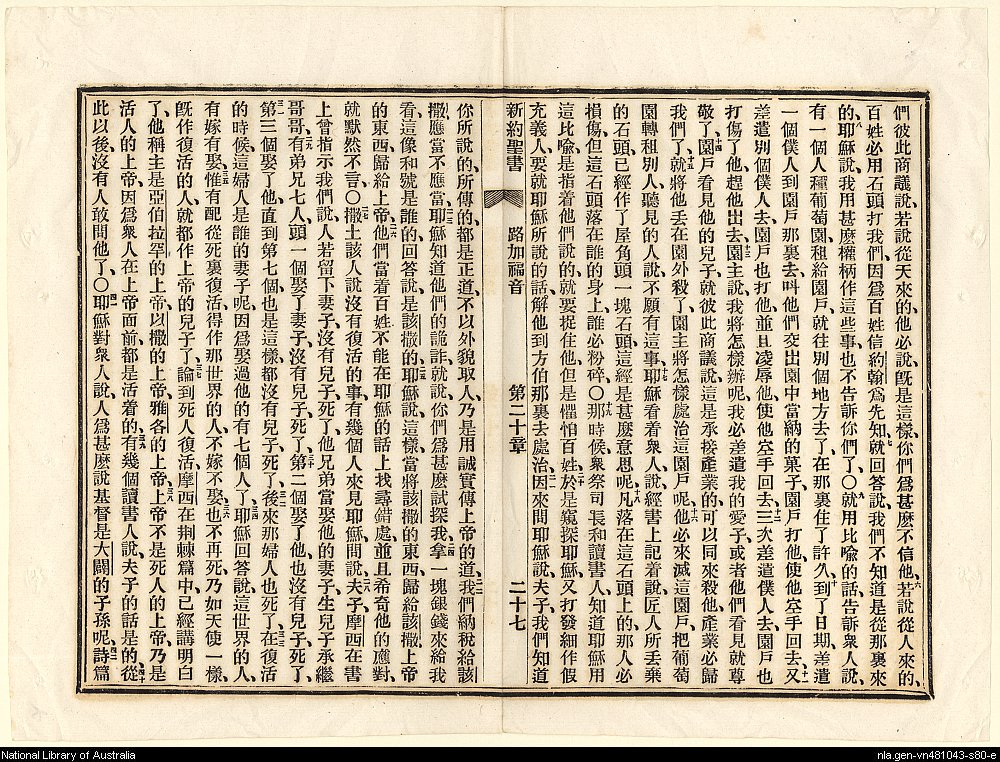 們彼此商議說、若說從天來的、他必說、旣是這樣、你們爲甚麽不信他、六若說從人來的、
百姓必用石頭打我們、因爲百姓信約翰爲先知、七就回答說、我們不知道是從那裏來
的、八耶穌說、我用甚麽權柄作這些事、也不告訴你們了、〇九就用比喩的話告訴衆人說、
有一個人種葡萄園、租給園戶、就往別個地方去了、在那裏住了許久、十到了日期、差遣
一個僕人到園戶那裏去、呌他們交出園中當納的菓子、園戶打他、使他空手回去、十一又
差遣別個僕人去、園戶也打他、並且凌辱他、使他空手回去、十二三次差遣僕人去、園戶也
打傷了他、趕他出去、十三園主說、我將怎樣辦呢、我必差遣我的愛子、或者他們看見就尊
敬了、十四園戶看見他的兒子、就彼此商議說、這是承接產業的、可以同來殺他、產業必歸
我們了、十五就將他丢在園外殺了、園主將怎樣處治這園戶呢、十六他必來滅這園戶、把葡萄
園轉租別人、聽見的人說、不願有這事、十七耶穌看着衆人、說、經書上記着說、匠人所丢棄
的石頭、已經作了屋角頭一塊石頭、這經是甚麽意思呢、十八凡落在這石頭上的、那人必
損傷、但這石頭落在誰的身上、誰必粉碎、〇十九那時候、衆祭司長和讀書人、知道耶穌用
這比喩是指着他們說的、就要捉住他、但是懼怕百姓、二十於是窺探耶穌、又打發細作、假
充義人、要就耶穌所說的話、解他到方伯那裏去處治、二一因來問耶穌說、夫子、我們知道
新約聖書 路加福音 第二十章 二十七
你所說的、所傳的、都是正道、不以外貌取人、乃是用誠實傳上帝的道、二二我們納稅給該
撒、應當不應當、二三耶穌知道他們的詭詐、就說、你們爲甚麽試探我、二四拿一塊銀錢來給我
看、這像和號是誰的、回答說、是該撒的、二五耶穌說、這樣、當將該撒的東西歸給該撒、上帝
的東西歸給上帝、二六他們當着百姓、不能在耶穌的話上找尋錯處、並且希奇他的應對、
就默然不言、〇二七撒土該人說沒有復活的事、有幾個人來見耶穌、問說、二八夫子、摩西在書
上曾指示我們說、人若留下妻子、沒有兒子死了、他兄弟當娶他的妻子、生兒子承繼
哥哥、二九有弟兄七人、頭一個娶了妻子、沒有兒子死了、三十第二個娶了他、也沒有兒子死了、
三一第三個娶了他、直到第七個也是這樣、都沒有兒子死了、三二後來那婦人也死了、三三在復活
的時候、這婦人是誰的妻子呢、因爲娶過他的有七個人了、三四耶穌回答說、這世界的人、
有嫁有娶、三五惟有配從死裏復活得作那世界的人、不嫁不娶、三六也不再死、乃如天使一樣、
旣作復活的人、就都作上帝的兒子了、三七論到死人復活、摩西在荆棘篇中、已經講明白
了、他稱主是亞伯拉罕的上帝、以撒的上帝、雅各的上帝、三八上帝不是死人的上帝、乃是
活人的上帝、因爲衆人在上帝面前都是活着的、三九有幾個讀書人說、夫子的話是的、四十從
此以後沒有人敢問他了、〇四一耶穌對衆人說、人爲甚麽說基督是大闢的子孫呢、四二詩篇
National Library of Australia
nla.gen-vn481043-s80-e